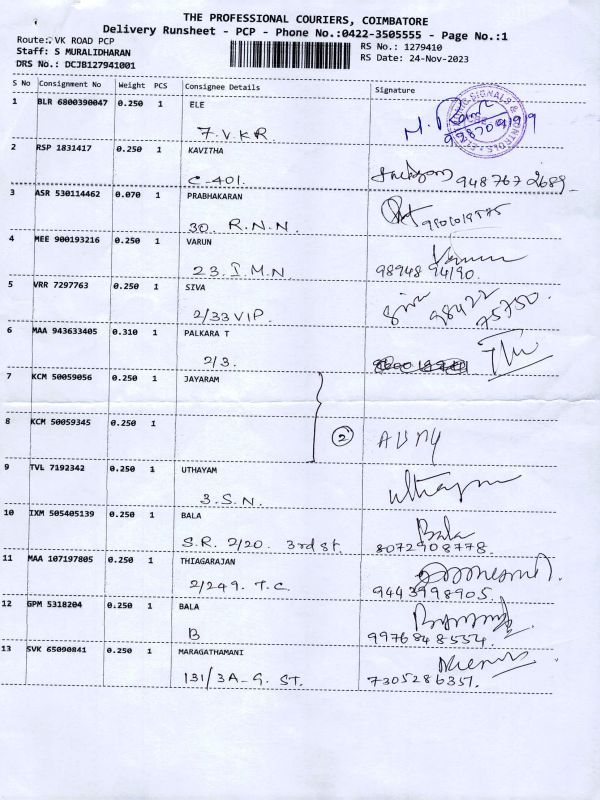 THE PROFESSIONAL COURIERS, COIMBATORE
Delivery Runsheet - PCP - Phone No.:0422-3505555 - Page No.:1
Route: VK ROAD PCP
RS No.: 1279410
Staff: S MURALIDHARAN
RS Date: 24-Nov-2023
DRS No.: DCJB127941001
S No Consignment No Weight PCS Consignee Details Signature
1 BLR 6800390047 0.250 1 ELE
7.V.KR
2 RSP 1831417 0.250 1 KAVITHA
C-401. 948767 2689
3 ASR 530114462 0.070 1 PRABHAKARAN
30. R.N.N.
4 MEE 900193216 0.250 1 VARUN
23. I.M.N. 98948 94190.
5 VRR 7297763 0.250 1 SIVA
2/33 VIP. Siva 98422 75750.
6 MAA 943633405 0.310 1 PALKARA T
2/3.
7 KCM 50059056 0.250 1 JAYARAM
8 KCM 50059345 0.250 1
2
9 TVL 7192342 0.250 1 UTHAYAM
3.S.N. Uthayam
10 IXM 505405139 0.250 1 BALA
Bala
S.R. 2/20. 3rd st. 8072908778.
11 MAA 107197805 0.250 1 THIAGARAJAN
2/249. T.C. 9443998905.
12 GPM 5318204 0.250 1 BALA
B 9976848554.
13 SVK 65090841 0.250 1 MARAGATHAMANI
131/3A-G. ST. 7305286351.